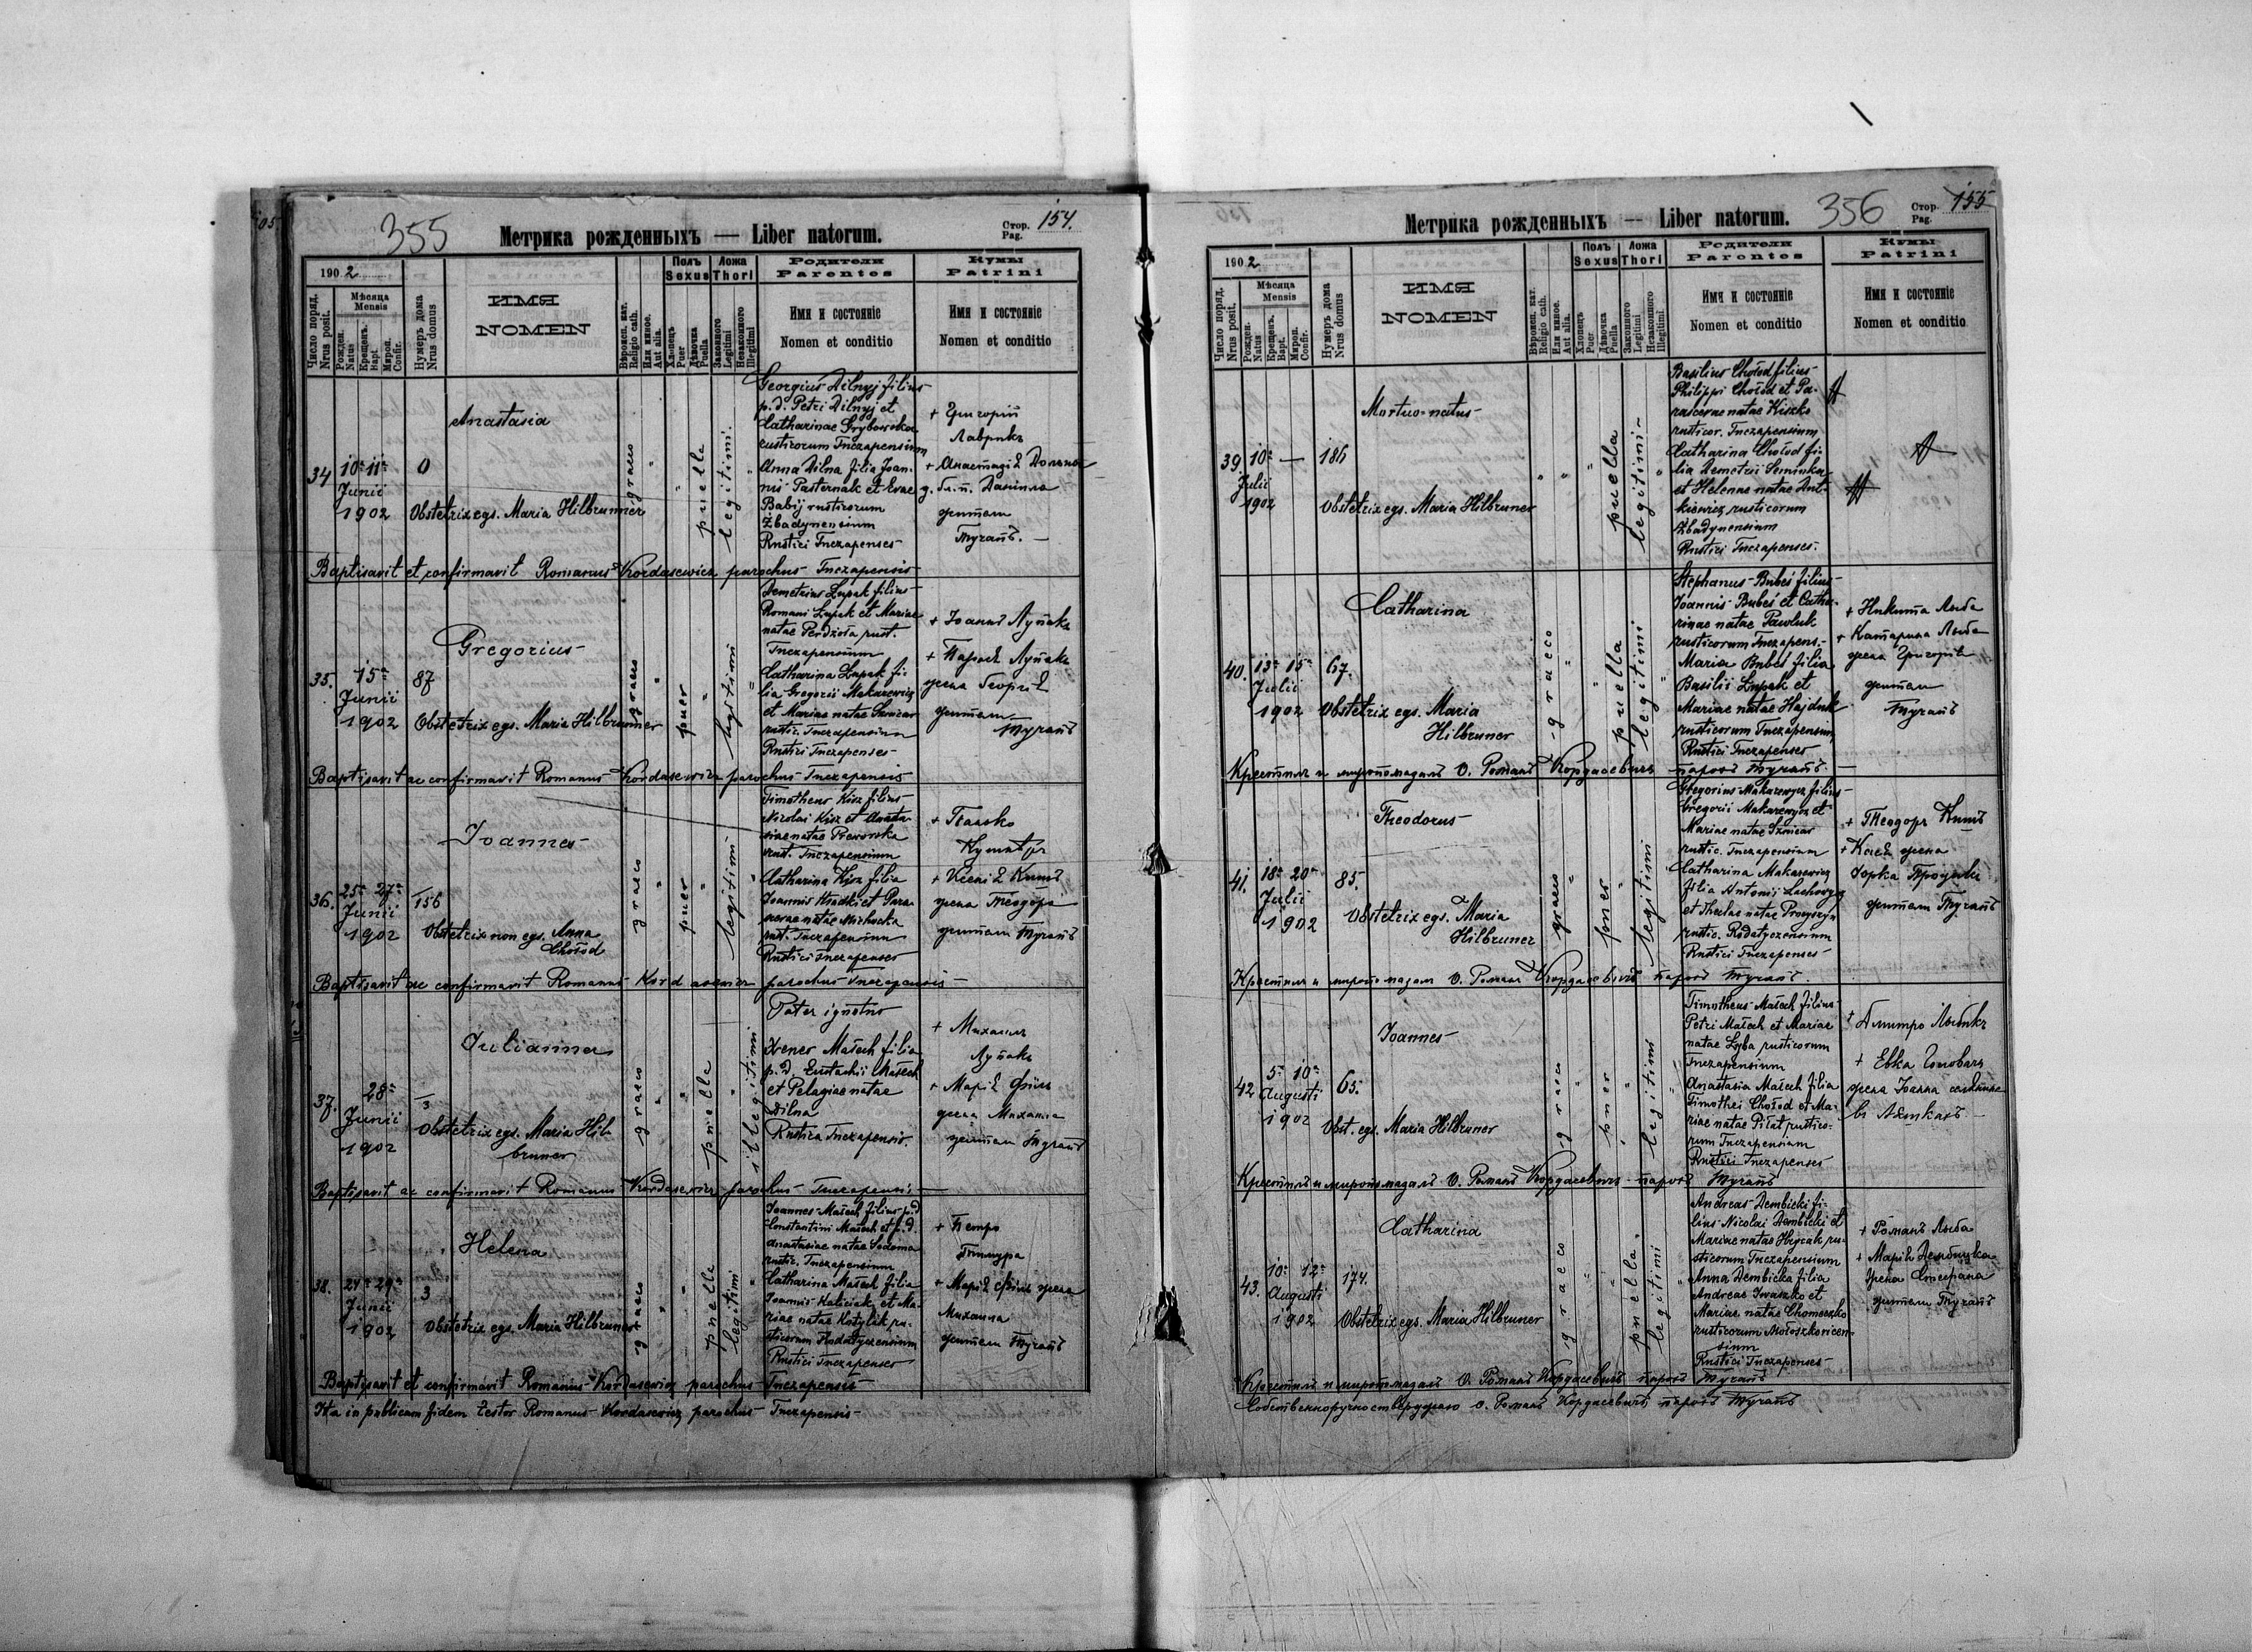 355
Метрика рожденныхъ — Liber natorum.
Стор. Pag. 154.
190 2
Число поряд. Nrus posit.
Мѣсяца Mensis
Рожден. Natus
Крещенъ. Bapt.
Мироп. Confir.
Нумеръ дома Nrus domus
ИМЯ
NOMEN
Вѣроисп. кат. Religio cath.
Или иное. Aut alia.
Полъ Sexus
Хлопець Puer
Дѣвочка Puella
Ложа Thori
Законного Legitimi
Незаконного Illegitimi
Родители
Parentes
Имя и состоянiе
Nomen et conditio
Кумы
Patrini
Имя и состоянiе
Nomen et conditio
34
10ª 11ª
Junii
1902
0
Anastasia
Obstetrix egs. Maria Hilbrunner
graeco
puella
legitimi.
Georgius Dilnyj filius
p. d. Petri Dilnyj et
Catharinae Grybowska
rusticorum Tuczapensium
Anna Dilna filia Joan-
nis Pasternak et Evae
Babij rusticorum
Żbadynensium
Rustici Tuczapenses
+ Григорій
Лаврикъ
жител
Тучапъ.
Baptisavit et confirmavit Romanus Kordasewicz parochus Tuczapensis
35.
15ª
Junii
1902
87
Gregorius
Obstetrix egs. Maria Hilbrunner
graeco
puer
legitimi
Demetrius Łupak filius
Romani Łupak et Mariae
natae Perdziola rust.
Tuczapensium
Catharina Łupak fi-
lia Gregorii Makarewicz
et Mariae natae Szwiear
rustic. Tuczapensium
Rustici Tuczapenses
+ Іоаннъ Лупакъ
+ Параск Лупакъ
жена Георгія
жители
Тучапъ
Baptisavit ac confirmavit Romanus Kordasewicz parochus Tuczapensis
36.
25ª 27ª
Junii
1902
156
Joannes
Obstetrix non egs. Anna
Chołod
graeco
puer
legitimi
Timotheus Kisz filius
Nicolai Kisz et Anasta-
siae natae Preworska
rust. Tuczapensium
Catharina Kisz filia
Joannis Kradki et Para-
scevae natae Michucka
rust. Tuczapensium
Rustici Tuczapenses
+ Панько
+ Ксенія Кишъ
жена Теодора
жители Тучапъ
Baptisavit ac confirmavit Romanus Kordasewicz parochus Tuczapensis
37.
28ª
Junii
1902
3
Julianna
Obstetrix egs. Maria Hil-
bruner
graeco
puella
illegitimi
Pater ignotus
Xenes Małech filia
p. d. Eustachii Małech
et Pelagiae natae
Dilna
Rustica Tuczapensis
+ Михаилъ
Лупакъ
+ Марія Філь
жена Михаила
жители Тучапъ
Baptisavit ac confirmavit Romanus Kordasewicz parochus Tuczapensis
38.
27ª 29ª
Junii
1902
3
Helena
Obstetrix egs. Maria Hilbruner
graeco
puella
legitimi
Joannes Małech filius p. d.
Constantini Małech et p. d.
Anastasiae natae Sodoma
rustic. Tuczapensium
Catharina Małech filia
Joannis Kaliciak et Ma-
riae natae Kotylik ru-
sticorum Rodatyczensium
Rustici Tuczapenses
+ Петро
+ Марія Філь жена
Михаила
жители Тучапъ
Baptisavit et confirmavit Romanus Kordasewicz parochus Tuczapensis
Ita in publicam fidem testor Romanus Kordasewicz parochus Tuczapensis
Метрика рожденныхъ — Liber natorum.
356
Стор. Pag. 155
190 2
Число поряд. Nrus posit.
Мѣсяца Mensis
Рожден. Natus
Крещенъ. Bapt.
Мироп. Confir.
Нумеръ дома Nrus domus
ИМЯ
NOMEN
Вѣроисп. кат. Religio cath.
Или иное. Aut alia.
Полъ Sexus
Хлопець Puer
Дѣвочка Puella
Ложа Thori
Законного Legitimi
Незаконного Illegitimi.
Родители
Parentes
Имя и состоянiе
Nomen et conditio
Кумы
Patrini
Имя и состоянiе
Nomen et conditio
39.
10ª —
Julii
1902
186
Mortuo-natus
Obstetrix egs. Maria Hilbruner
puella
legitimi
Basilius Chołod filius
Philippi Chołod et Pa-
rascevae natae Kiszko
rusticor. Tuczapensium
Catharina Chołod fi-
lia Demetrii Seminka
et Helenae natae Ant-
kiewicz rusticorum
Żbadynensium
Rustici Tuczapenses.
40.
13ª 15ª
Julii
1902
67.
Catharina
Obstetrix egs. Maria
Hilbruner
graeco
puella
legitimi
Stephanus Bubeś filius
Joannis Bubeś et Catha-
rinae natae Pawluk
rusticorum Tuczapens.
Maria Bubeś filia
Basilii Łupak et
Mariae natae Hajduk
rusticorum Tuczapensium
Rustici Tuczapenses
+ Никита Лыба
+ Катарина Лыба
жена Григорія
жители
Тучапъ
Крестилъ и миропомазалъ О. Романъ Кордасевичъ парохъ Тучапъ.
41.
18ª 20ª
Julii
1902
85.
Theodorus
Obstetrix egs. Maria
Hilbruner
graeco
puer
legitimi
Gregorius Makarewycz filius
Gregorii Makarewycz et
Mariae natae Szwiear
rustic. Tuczapensium
Catharina Makarewicz
filia Antonii Lachowycz
et Theclae natae Procyszyn
rustic. Rodatyczensium
Rustici Tuczapenses
+ Теодоръ Кишъ
жена
жители Тучапъ
Крестилъ и миропомазалъ О. Романъ Кордасевичъ парохъ Тучапъ.
42
5ª 10ª
Augusti
1902
65.
Joannes
Obst. egs. Maria Hilbruner
graeco
puer
legitimi
Timotheus Małech filius
Petri Małech et Mariae
natae Łyba rusticorum
Tuczapensium
Anastasia Małech filia
Timothei Chołod et Ma-
riae natae Piłat rustico-
rum Tuczapensium
Rustici Tuczapenses
+ Дмитро
+ Евка
жена Іоанна
Крестилъ и миропомазалъ О. Романъ Кордасевичъ парохъ Тучапъ
43.
10ª 12ª
Augusti
1902
174.
Catharina
Obstetrix egs. Maria Hilbruner
graeco
puella
legitimi
Andreas Dembicki fi-
lius Nicolai Dembicki et
Mariae natae Hrycak ru-
sticorum Tuczapensium
Anna Dembicka filia
Andreae Iwaszko et
Mariae natae Chomeczko
rusticorum Mołoszkowicen-
sium
Rustici Tuczapenses
+ Романъ Лыба
+ Марія Дембицка
жена Стефана
жители Тучапъ
Крестилъ и миропомазалъ О. Романъ Кордасевичъ парохъ Тучапъ
Собственноручно стверджаю о. Романъ Кордасевичъ парохъ Тучапъ